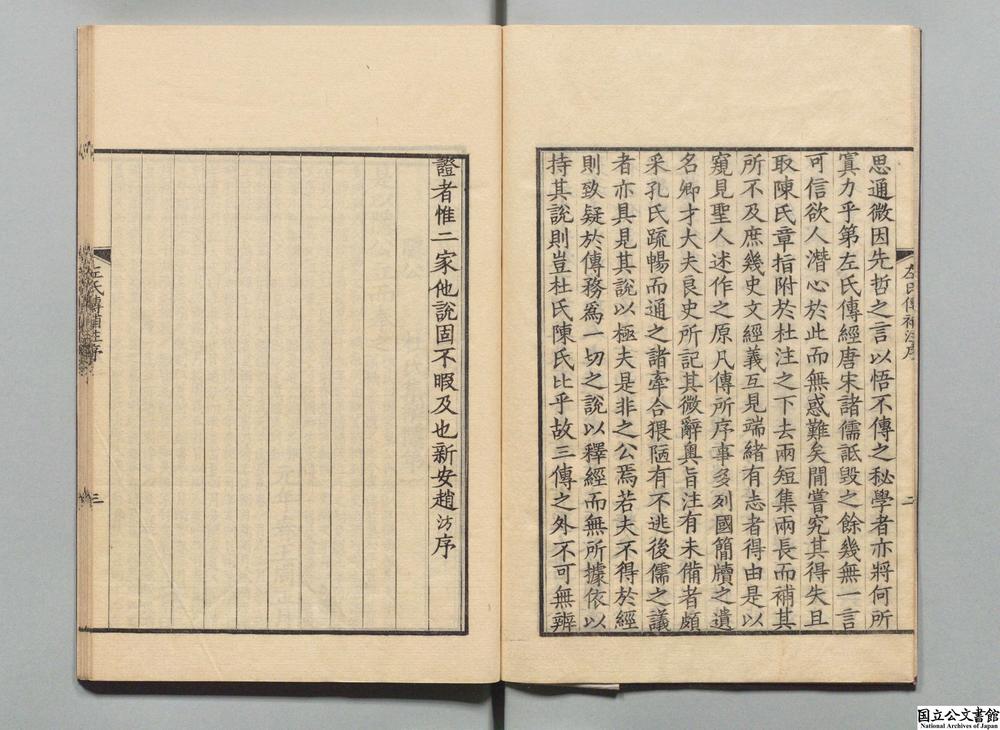 左氏傳補注序
二
思通微因先哲之言以悟不傳之秘學者亦將何所
寘力乎第左氏傳經唐宋諸儒詆毀之餘幾無一言
可信欲人潛心於此而無惑難矣閒嘗究其得失且
取陳氏章指附於杜注之下去兩短集兩長而補其
所不及庶幾史文經義互見端緒有志者得由是以
窺見聖人述作之原凡傳所序事多列國簡牘之遺
名卿才大夫良史所記其微辭奧旨注有未備者頗
采孔氏疏暢而通之諸牽合猥陋有不逃後儒之議
者亦具見其說以極夫是非之公焉若夫不得於經
則致疑於傳務為一切之說以釋經而無所據依以
持其說則豈杜氏陳氏比乎故三傳之外不可無辨
證者惟二家他說固不暇及也新安趙汸序
左氏傳補注序
三
国立公文書館
National Archives of Japan